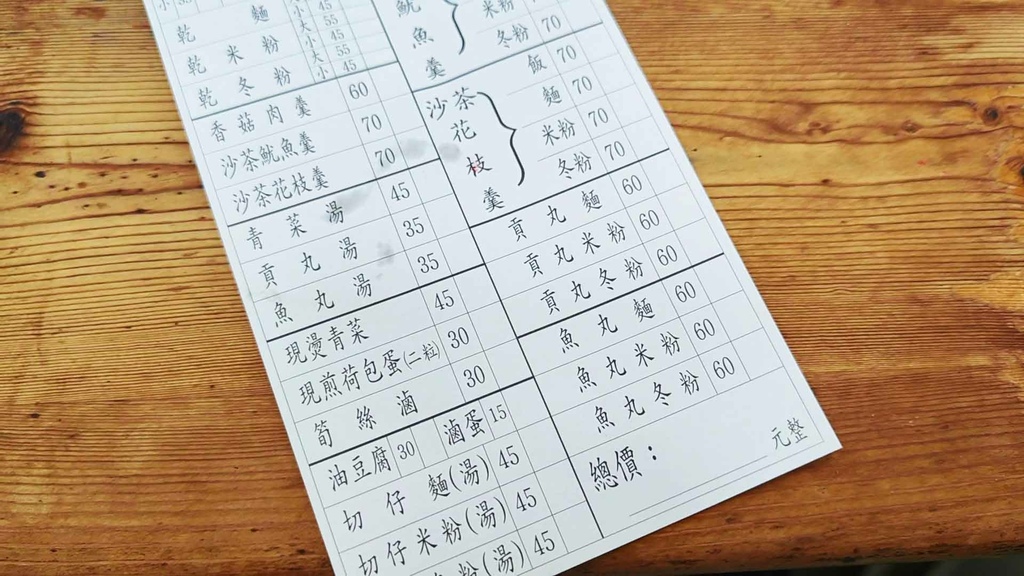 小 35
乾麵 大 55
小 45
乾米粉 大 55
小 45
乾冬粉 大 55
小 45
香菇肉羹 60
沙茶魷魚羹 70
沙茶花枝羹 70
青菜湯 45
貢丸湯 35
魚丸湯 35
現燙青菜 45
現煎荷包蛋(二粒) 30
筍絲滷 30
油豆腐 30 滷蛋 15
切仔麵(湯) 45
切仔米粉(湯) 45
粉(湯) 45
魷魚羹
米粉 70
冬粉 70
沙茶花枝羹
飯 70
麵 70
米粉 70
冬粉 70
貢丸麵 60
貢丸米粉 60
貢丸冬粉 60
魚丸麵 60
魚丸米粉 60
魚丸冬粉 60
總價： 元整